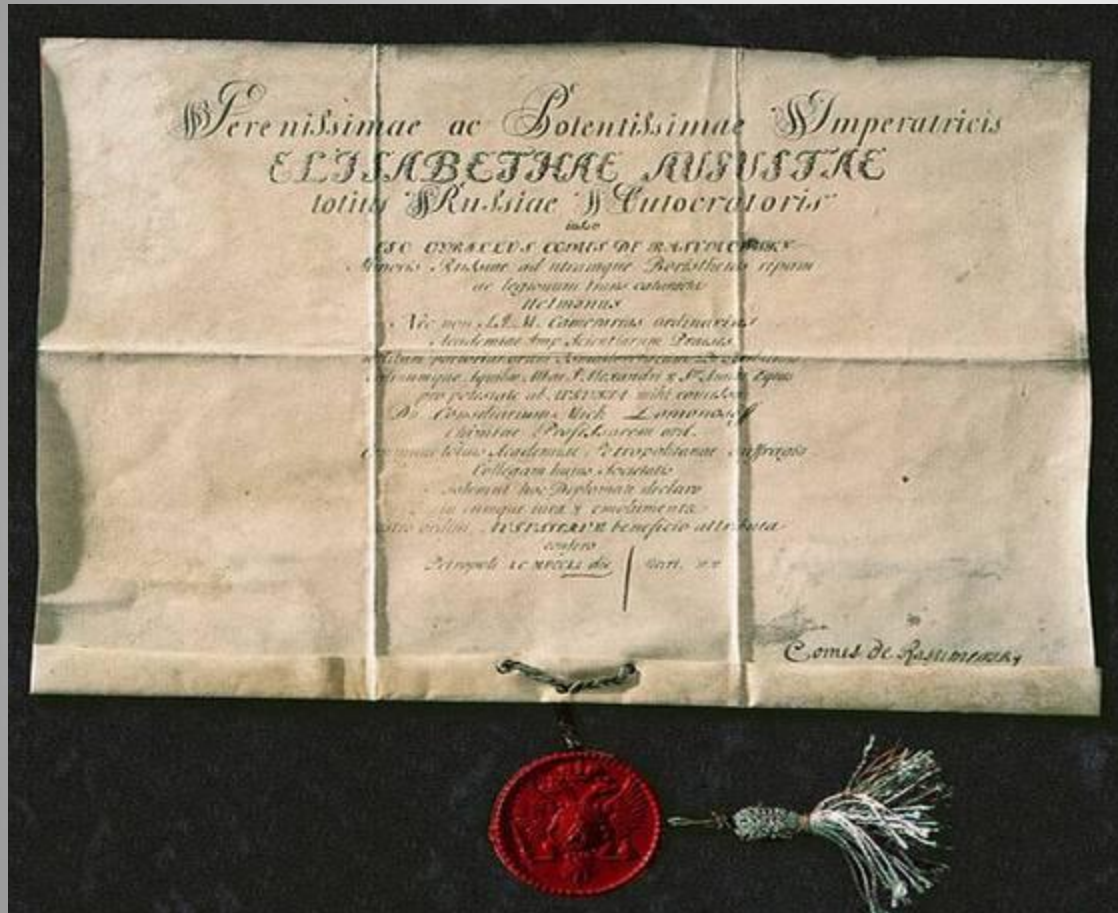 Serenissimae ac Potentissimae Imperatricis
ELISABETHAE AUGUSTAE
totius Russiae Autocratoris
iussu
EGO CYRILLUS COMES DE RASUMOWSKY
Minoris Russiae ad utramque Boristhenis ripam
ac legionum trans
Hetmanus
Nec non S.I.M. Camerarius ordinarius
Academiae Imp. Scientiarum Praeses
Aquilae Albae S. Alexandri & Stae Annae Eques
pro potestate ab AUGUSTA mihi concessa
Dn. Consiliarium Mich. Lomonosoff
Chimiae Professorem ord.
totius Academiae Petropolitanae suffragio
Collegam huius Societatis
solemni hoc Diplomate declaro
in eumque iura & emolumenta
ordini AUGUSTAE beneficio attributa
confero
Petropoli MDCCLI die
Comes de Rasumowsky